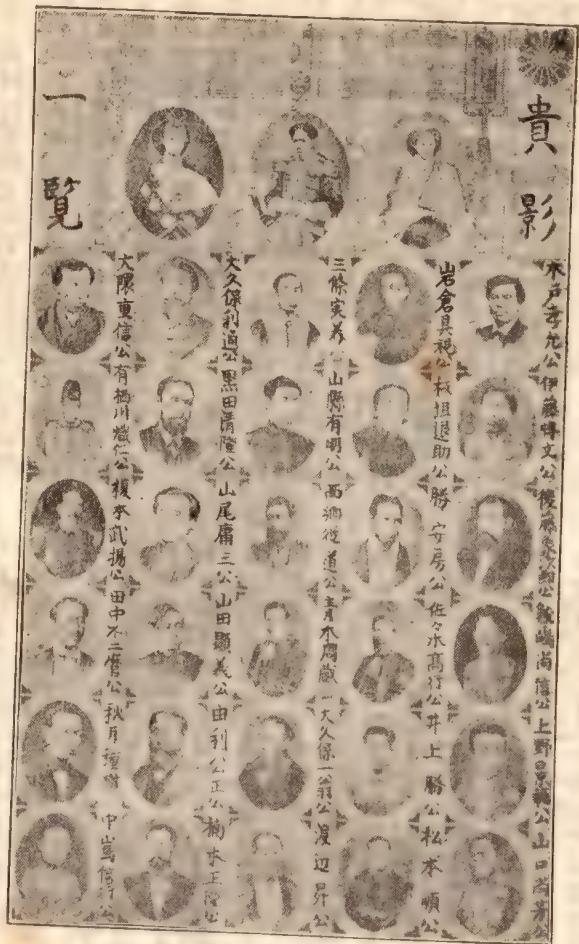 貴影
一覧
木戸孝允公 伊藤博文公 後藤象次郎公 副嶋尚信公 上野景範公 山口尚芳公
岩倉具視公 板垣退助公 勝安房公 佐々木高行公 井上勝公 松本順公
三條実美 山縣有朋公 西郷従道公 青木周蔵 大久保一翁公 渡辺昇公
大久保利通公 黒田清隆公 山尾庸三公 山田顕義公 由利公正公 楠本正隆公
大隈重信公 有栖川熾仁公 榎本武揚公 田中不二麿公 秋月種樹 中島信行公